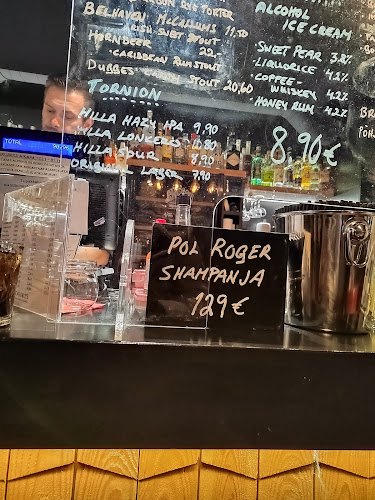 RYE PORTER
BELHAVEN McCALLUMS 11,50
IRISH SWEET STOUT
HORNBEER
CARIBBEAN RUM STOUT
STOUT 20,60
TORNION
HILLA HAZY IPA 9,90
HILLA LONGERO
HILLA SOUR 8,90
ORIGINAL LAGER 7,90
ALCOHOL
ICE CREAM
SWEET PEAR 3.8%
LIQUORICE 4.2%
COFFEE-
WHISKEY 4.2%
HONEY RUM 4.2%
8,90€
TOTAL
POL ROGER
SHAMPANJA
129€